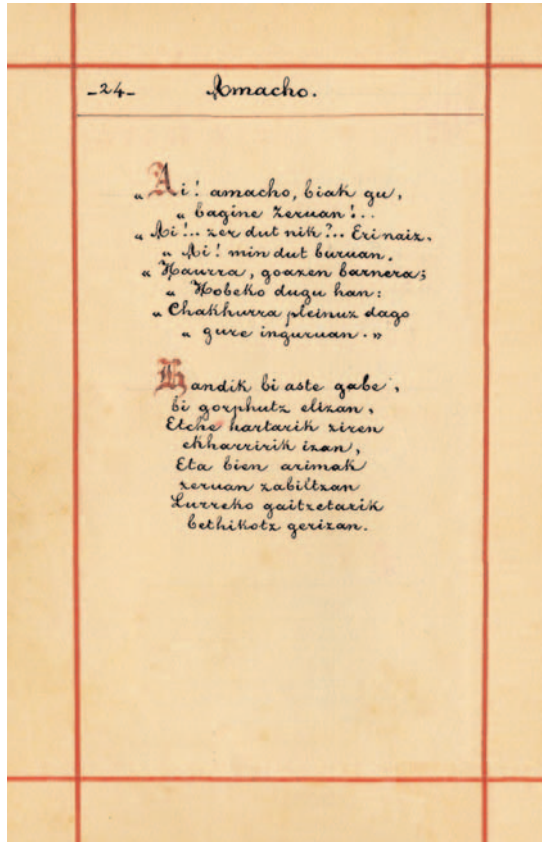 -24- Amacho.
„Ai! amacho, biak gu,
„ bagine zeruan!..
„ Ai!.. zer dut nik?.. Eri naiz.
„ Ai! min dut buruan.
„ Haurra, goazen barnera;
„ Hobeko dugu han:
„ Chakhurra pleinuz dago
„ gure inguruan.„
Handik bi aste gabe,
bi gorphutz elizan,
Etche hartarik ziren
ekharririk izan,
Eta bien arimak
zeruan zabiltzan
Lurreko gaitzetarik
bethikotz gerizan.